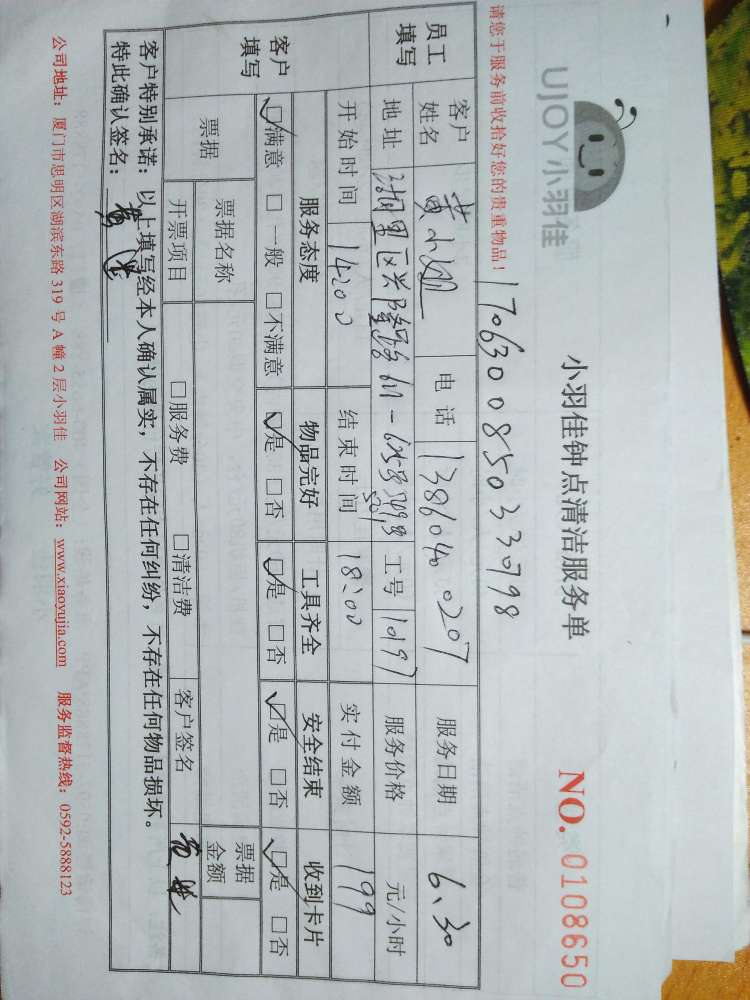 UJOY小羽佳
小羽佳钟点清洁服务单
NO. 0108650
请您于服务前收拾好您的贵重物品！
1706300850330798
员工填写
客户姓名 黄小姐 电话 13860400207 服务日期 6.30
地址 湖里区兴隆路611-625号 工号 1097 服务价格 元/小时
开始时间 14:00 结束时间 18:00 实付金额 199
客户填写
服务态度 物品完好 工具齐全 安全结束 收到卡片
☑满意 □一般 □不满意 ☑是 □否 ☑是 □否 ☑是 □否 ☑是 □否
票据 票据名称 票据金额
开票项目 □服务费 □清洁费 客户签名
客户特别承诺：以上填写经本人确认属实，不存在任何纠纷，不存在任何物品损坏。
特此确认签名：
公司地址：厦门市思明区湖滨东路 319 号 A 幢 2 层小羽佳 公司网站：www.xiaoyujia.com 服务监督热线：0592-5888123